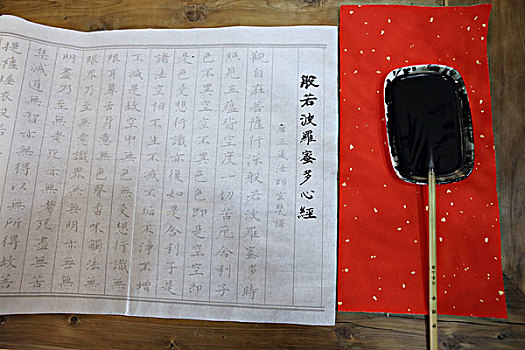 般若波羅蜜多心經
唐三藏法師玄奘譯
觀自在菩薩行深般若波羅蜜多時
照見五蘊皆空度一切苦厄舍利子
色不異空空不異色色即是空空即
是色受想行識亦復如是舍利子是
諸法空相不生不滅不垢不淨不增
不減是故空中無色無受想行識無
眼耳鼻舌身意無色聲香味觸法無
眼界乃至無意識界無無明亦無無
明盡乃至無老死亦無老死盡無苦
集滅道無智亦無得以無所得故菩
提薩埵依般若